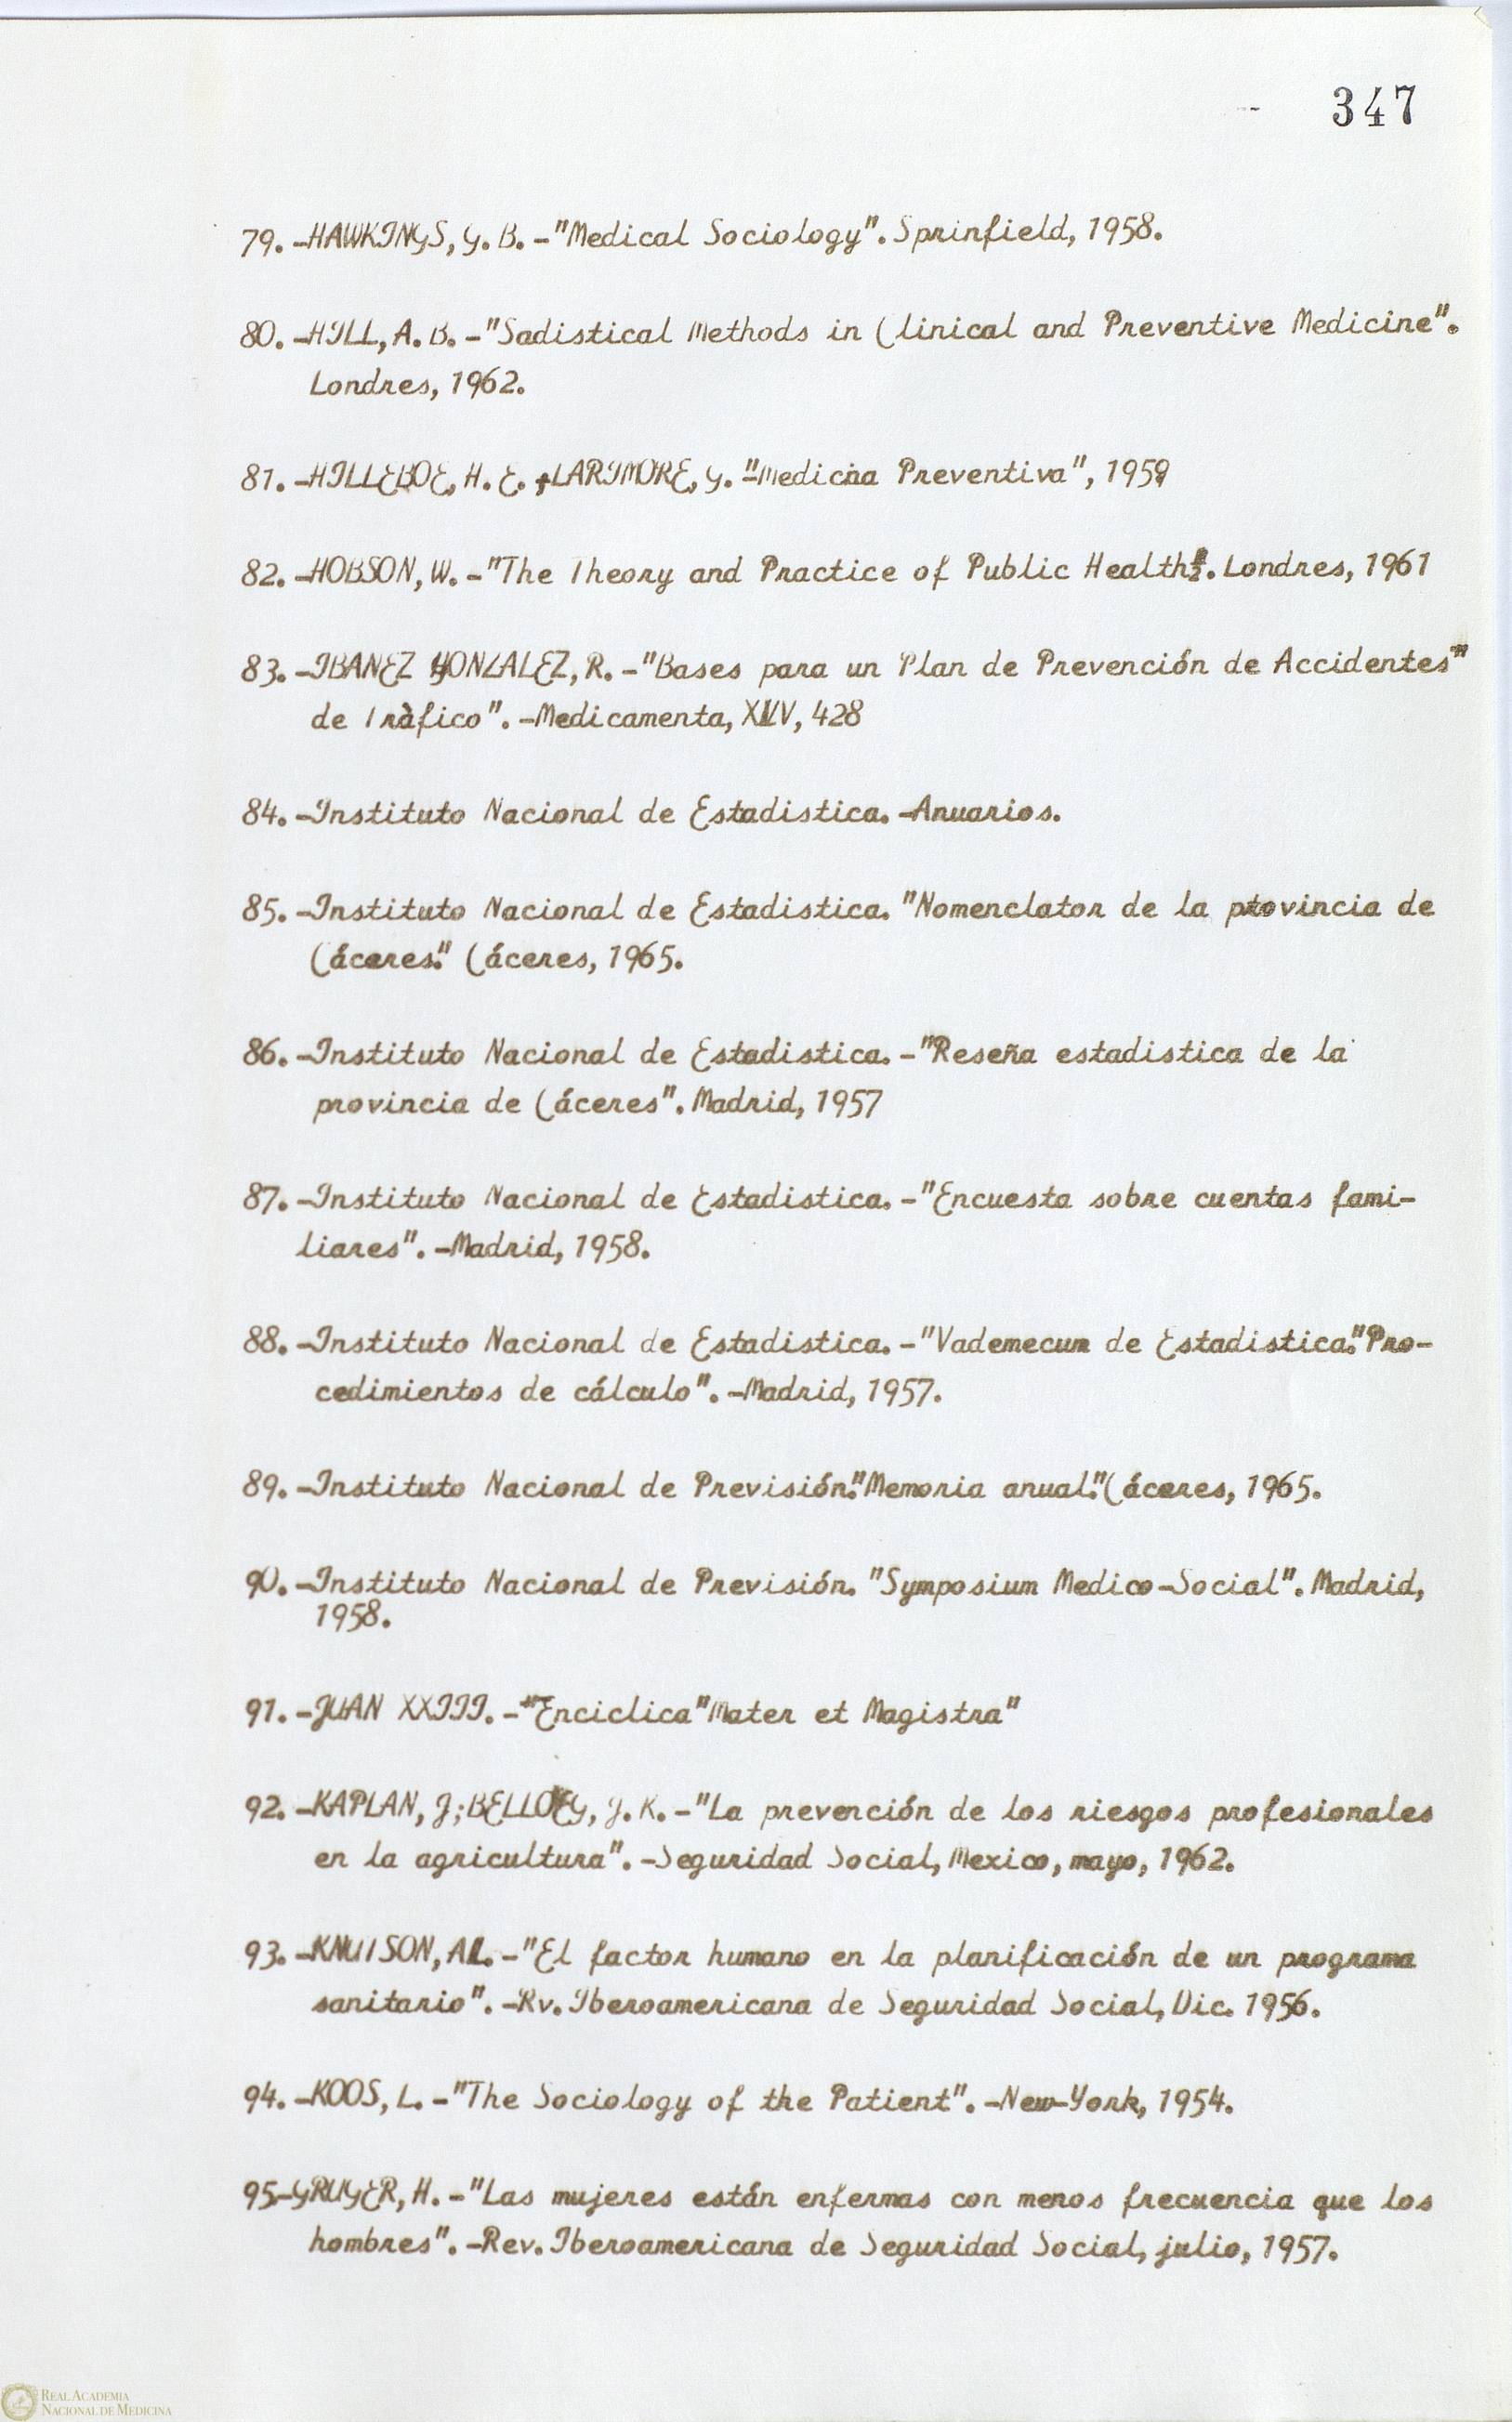 347
79.-HAWKINGS, G. B.-"Medical Sociology". Sprinfield, 1958.
80.-HILL, A. B.-"Sadistical Methods in Clinical and Preventive Medicine".
Londres, 1962.
81.-HILLEBOE, H. E. + LARIMORE, G. "Medicina Preventiva", 1959
82.-HOBSON, W.-"The Theory and Practice of Public Health". Londres, 1961
83.-IBANEZ GONZALEZ, R.-"Bases para un Plan de Prevención de Accidentes"
de Tràfico".-Medicamenta, XLIV, 428
84.-Instituto Nacional de Estadistica.-Anuarios.
85.-Instituto Nacional de Estadistica. "Nomenclator de la provincia de
Cáceres." Cáceres, 1965.
86.-Instituto Nacional de Estadistica.-"Reseña estadistica de la
provincia de Cáceres". Madrid, 1957
87.-Instituto Nacional de Estadistica.-"Encuesta sobre cuentas fami-
liares".-Madrid, 1958.
88.-Instituto Nacional de Estadistica.-"Vademecum de Estadistica."Pro-
cedimientos de cálculo".-Madrid, 1957.
89.-Instituto Nacional de Previsión."Memoria anual."Cáceres, 1965.
90.-Instituto Nacional de Previsión. "Symposium Medico-Social". Madrid,
1958.
91.-JUAN XXIII.-"Enciclica"Mater et Magistra"
92.-KAPLAN, J; BELLOEY, J. K.-"La prevención de los riesgos profesionales
en la agricultura".-Seguridad Social, Mexico, mayo, 1962.
93.-KNUTSON, AL.-"El factor humano en la planificación de un programa
sanitario".-Rv. Iberoamericana de Seguridad Social, Dic. 1956.
94.-KOOS, L.-"The Sociology of the Patient".-New-York, 1954.
95-GRUGER, H.-"Las mujeres están enfermas con menos frecuencia que los
hombres".-Rev. Iberoamericana de Seguridad Social, julio, 1957.
REAL ACADEMIA
NACIONAL DE MEDICINA